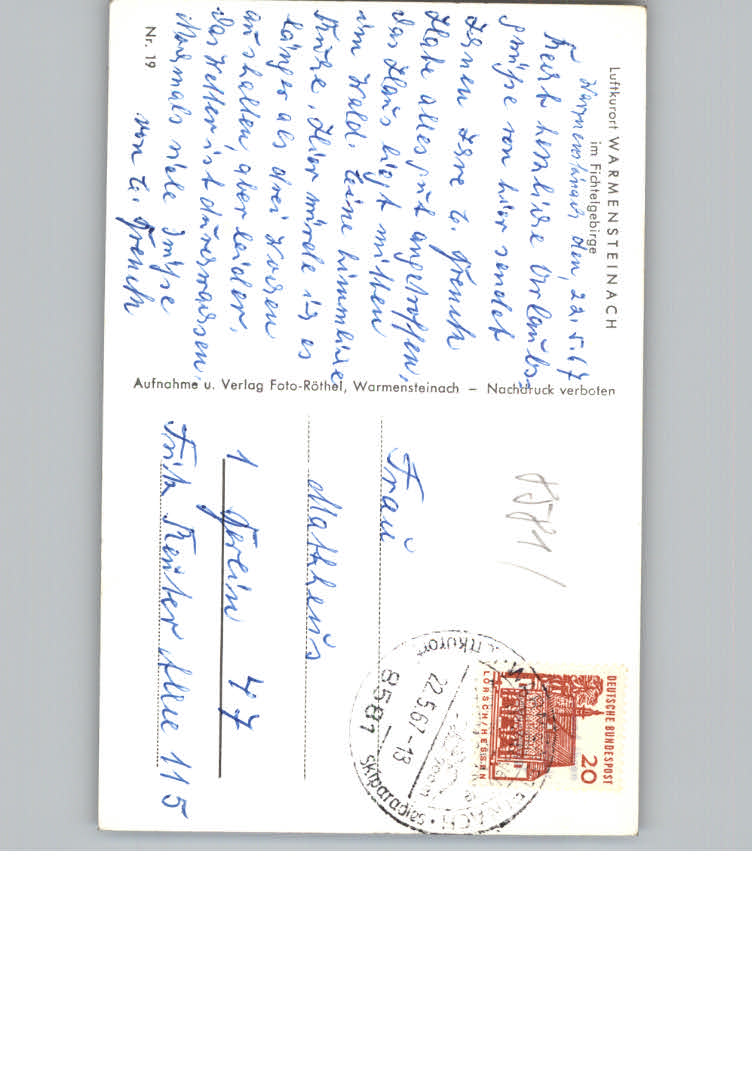 Luftkurort WARMENSTEINACH
im Fichtelgebirge
Warmensteinach den, 22.5.67
Recht herzliche Urlaubs-
grüße von hier sendet
Ihnen Ihre E.
Habe alles gut angetroffen,
das Haus liegt mitten
im Wald. Eine himmlische
Ruhe. Hier würde ich es
länger als drei Wochen
aushalten, aber leider.
Das Wetter ist durchwachsen.
Nochmals viele Grüße
von E.
Nr. 19
Aufnahme u. Verlag Foto-Röthel, Warmensteinach – Nachdruck verboten
8581
DEUTSCHE BUNDESPOST
20
LORSCH/HESSEN
Luftkurort
22.5.67-13
8581
Skiparadies
Frau
Mattheus
1 Berlin 47
Fritz Reuter Allee 115